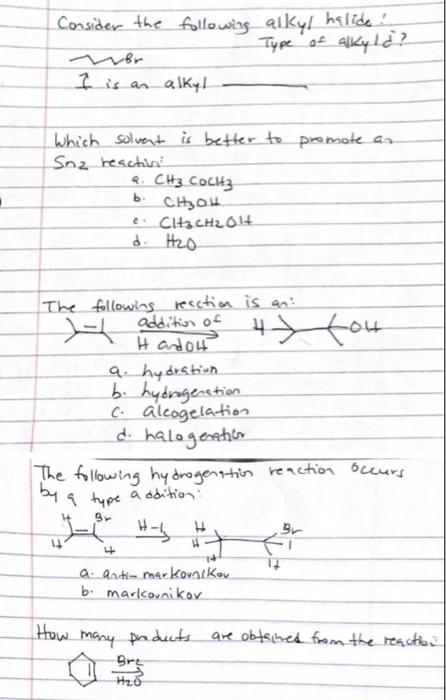 Consider the following alkyl halide:
Type of alkyl d?
Br
I is an alkyl
Which solvent is better to promote an
Sn2 reaction:
a. CH3COCH3
b. CH3OH
c. CH3CH2OH
d. H2O
The following reaction is an:
addition of
H and OH
H OH
a. hydration
b. hydrogenation
c. alcogelation
d. halogenation
The following hydrogenation reaction occurs
by a type addition:
H Br
H H
H-I
H Br
H I
H H
a. anti-markovnikov
b. markovnikov
How many products are obtained from the reaction:
Br2
H2O